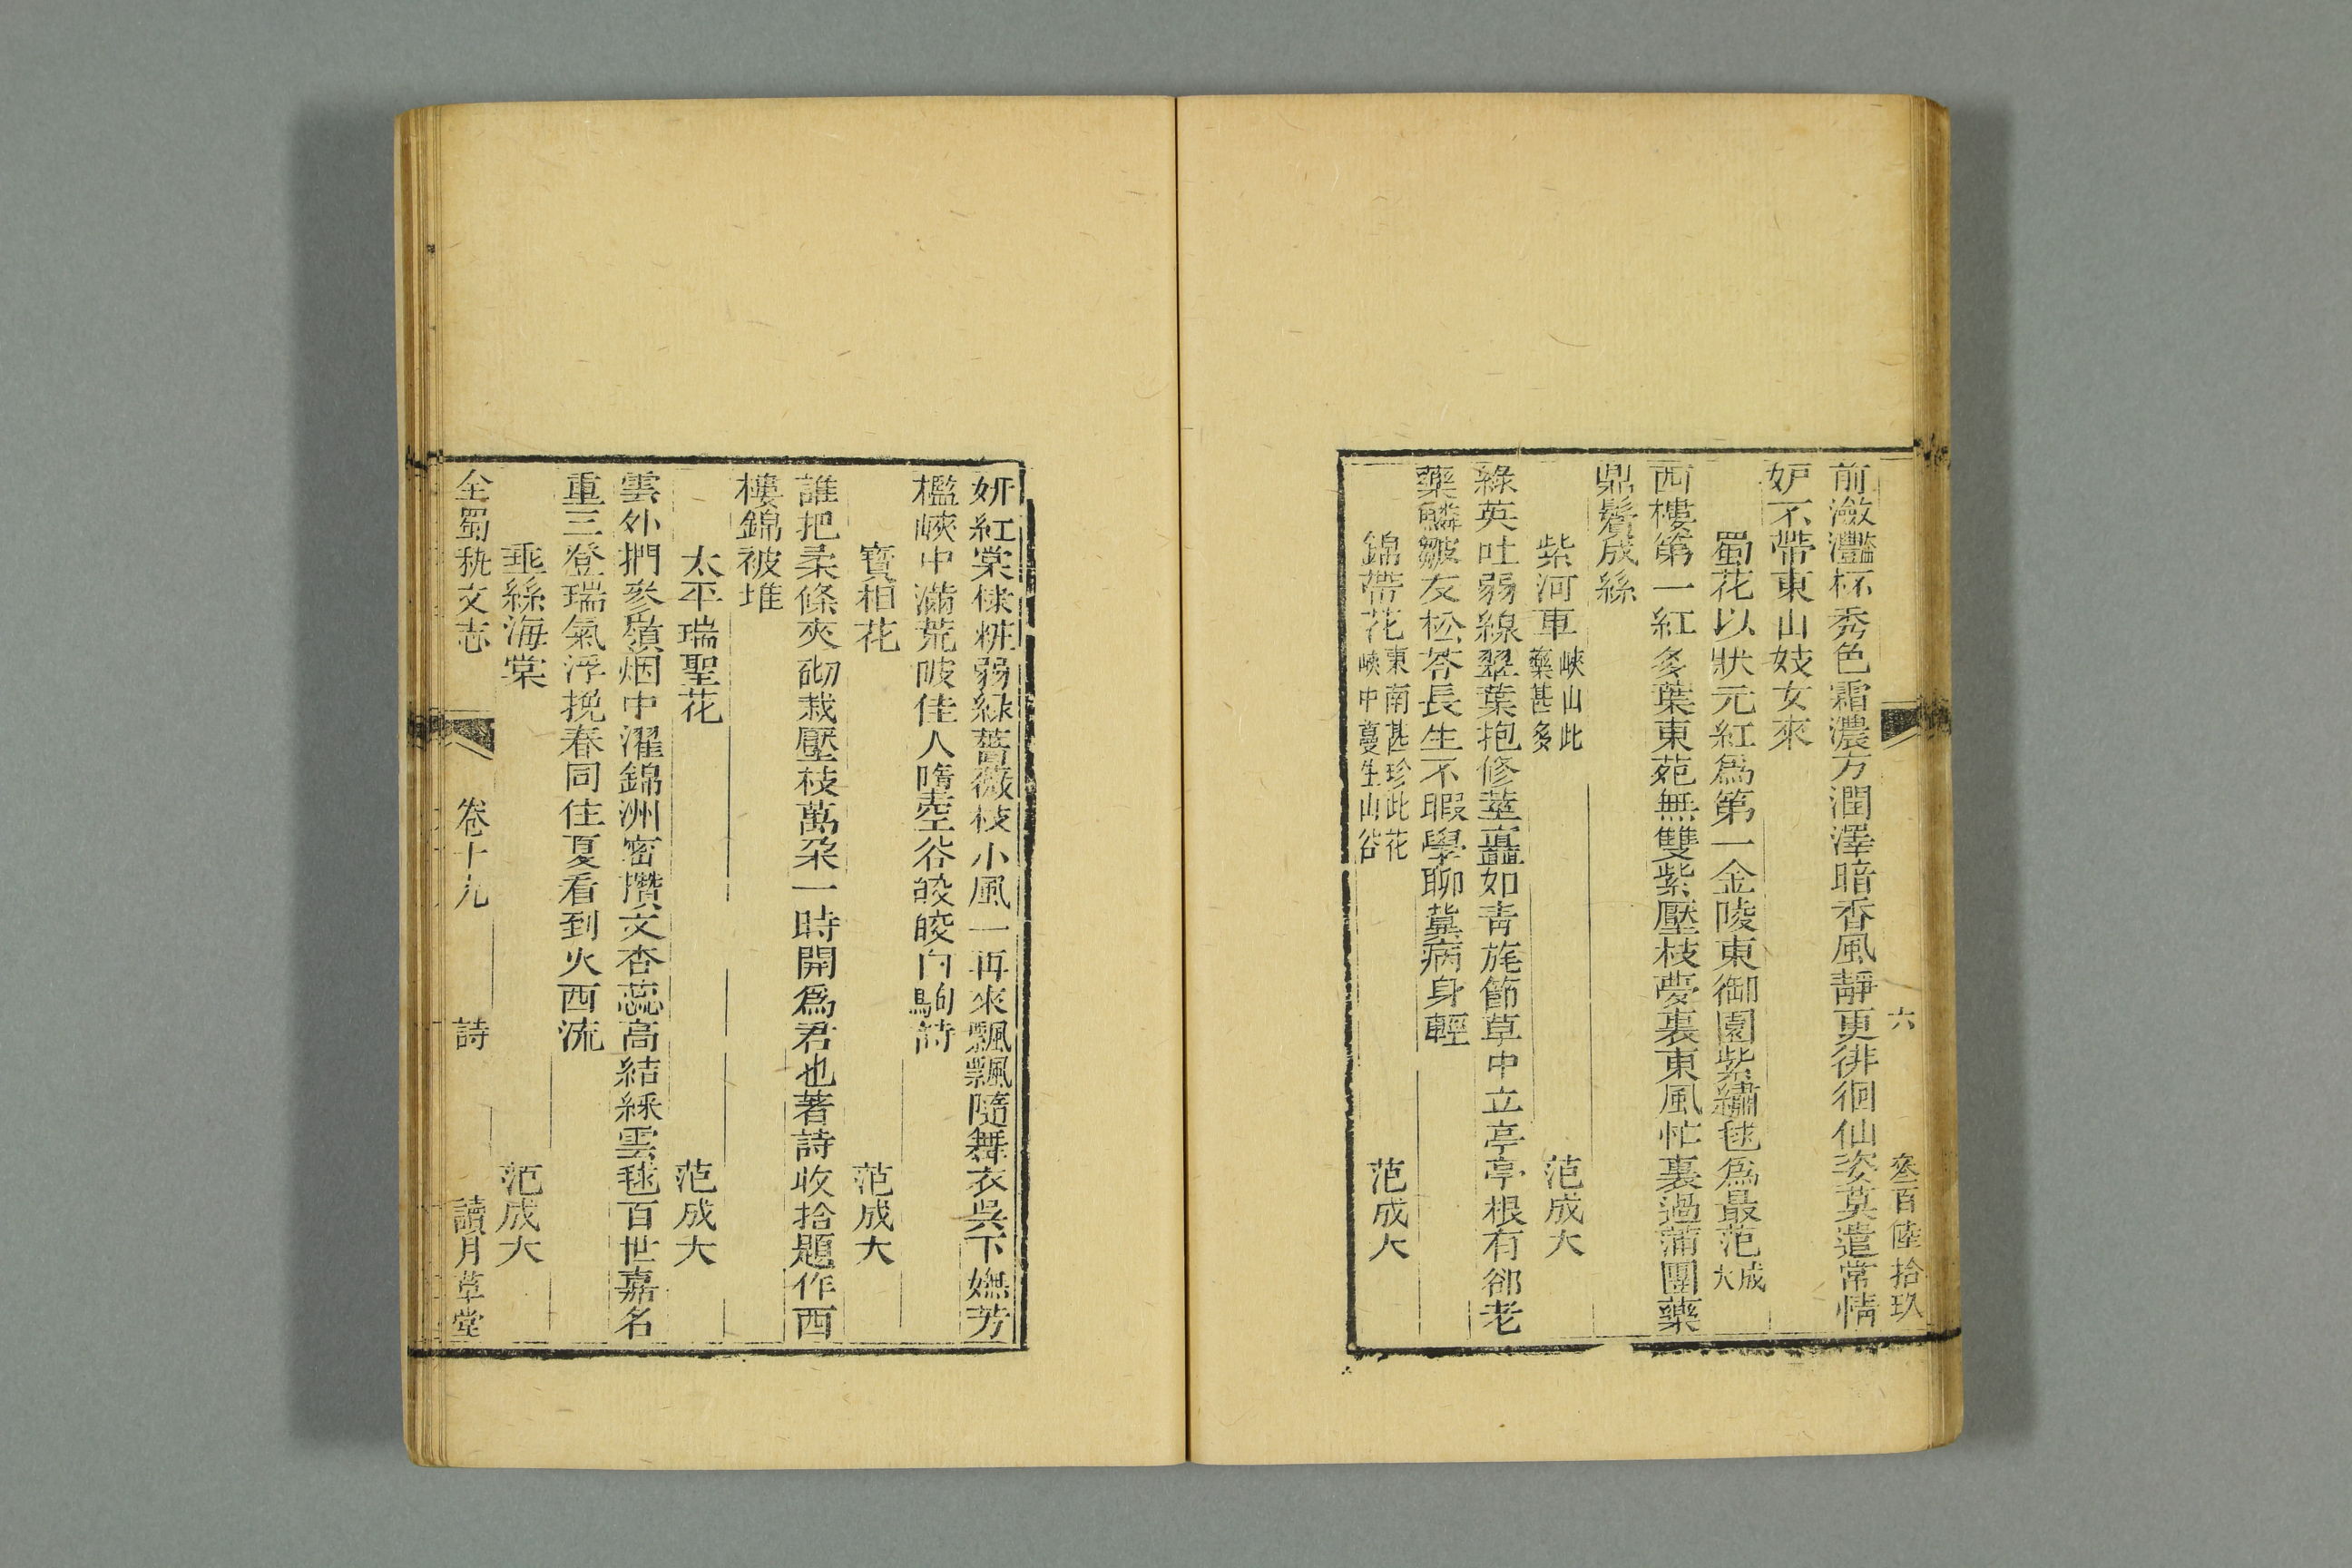 六 叄百陸拾玖
前瀲灩杯秀色霜濃方潤澤暗香風靜更徘徊仙姿莫遣常情
妒不帶東山妓女來
蜀花以狀元紅爲第一金陵東御園紫繡毬爲最范成大
西樓第一紅多葉東苑無雙紫壓枝夢裏東風忙裏過蒲團藥
鼎鬢成絲
紫河車 峽山此藥甚多 范成大
綠英吐弱線翠葉抱修莖矗如青旄節草中立亭亭根有郤老
藥鱗皴友松苓長生不暇學聊冀病身輕
錦帶花 東南甚珍此花峽中蔓生山谷 范成大
妍紅棠棣粧弱綠薔薇枝小風一再來飄飄隨舞衣吳下嫵芳
檻峽中滿荒陂佳人墮空谷皎皎白駒詩
寳相花 范成大
誰把柔條夾砌栽壓枝萬朵一時開爲君也著詩收拾題作西
樓錦被堆
太平瑞聖花 范成大
雲外捫參嶺烟中濯錦洲密攢文杏蕊高結綵雲毬百世嘉名
重三登瑞氣浮挽春同住夏看到火西流
垂絲海棠 范成大
全蜀秇文志 卷十九 詩 讀月草堂